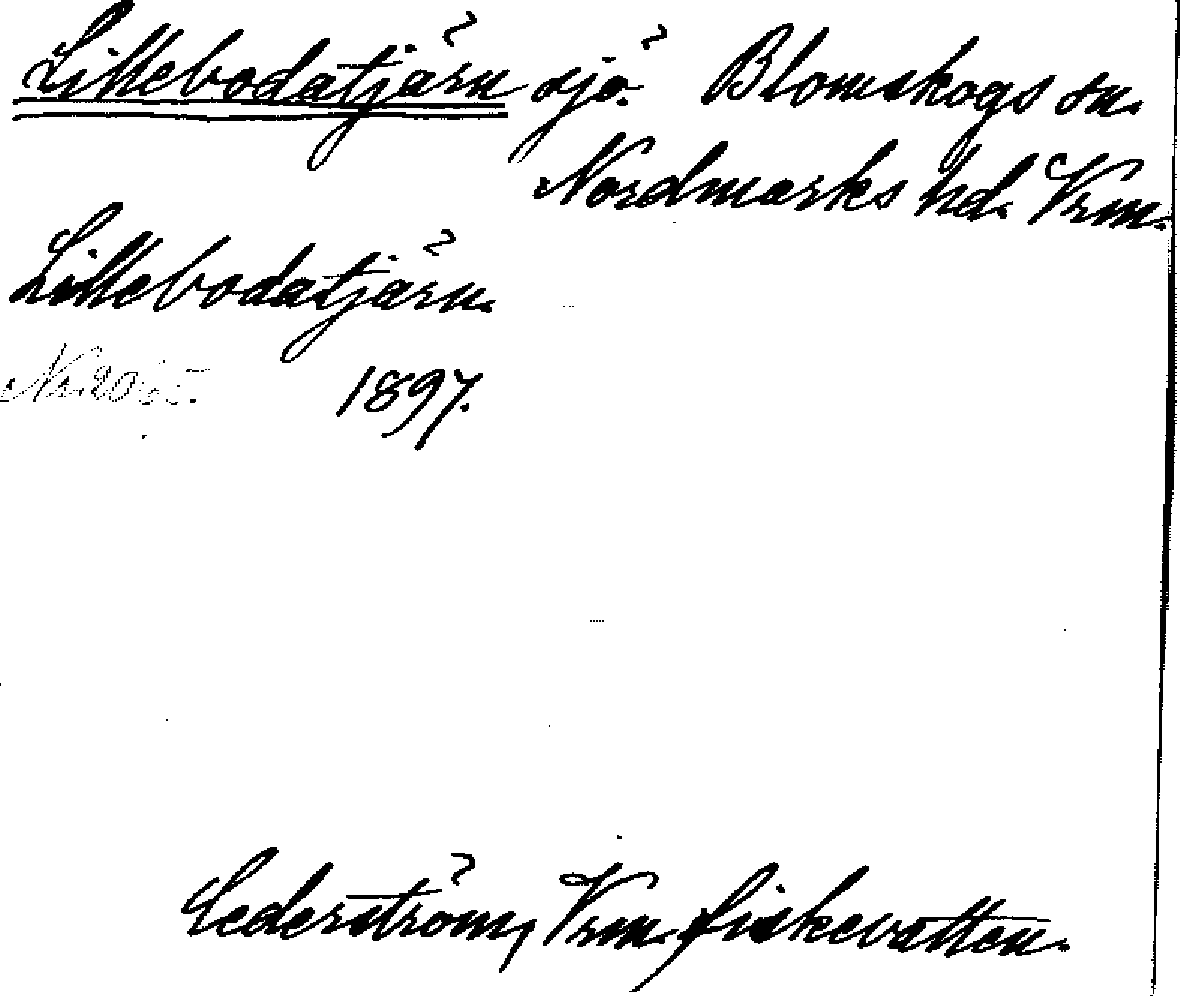 Lillebodatjärn sjö. Blomskogs sn.
Nordmarks hd. Vrm.
Lillebodatjärn.
Nr. 2065. 1897.
Cederström, Vrm. fiskevatten.